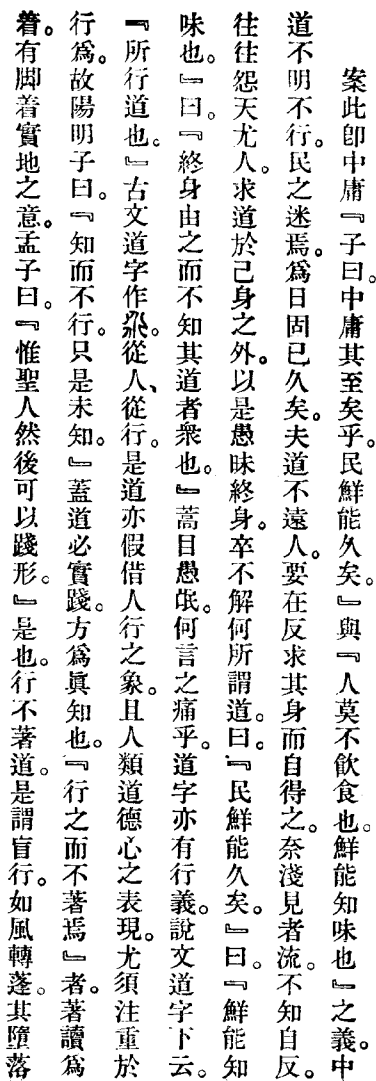 案此卽中庸『子曰。中庸其至矣乎。民鮮能久矣。』與『人莫不飮食也。鮮能知味也』之義。中
道不明不行。民之迷焉。爲日固已久矣。夫道不遠人。要在反求其身而自得之。奈淺見者流。不知自反。
往往怨天尤人。求道於己身之外。以是愚昧終身。卒不解何所謂道。曰。『民鮮能久矣。』曰。『鮮能知
味也。』曰。『終身由之而不知其道者衆也。』蒿目愚氓。何言之痛乎。道字亦有行義。說文道字下云。
『所行道也。』古文道字作。從人、從行。是道亦假借人行之象。且人類道德心之表現。尤須注重於
行爲。故陽明子曰。『知而不行。只是未知。』蓋道必實踐。方爲眞知也。『行之而不著焉』者。著讀爲
着。有脚着實地之意。孟子曰。『惟聖人然後可以踐形。』是也。行不著道。是謂盲行。如風轉蓬。其墮落